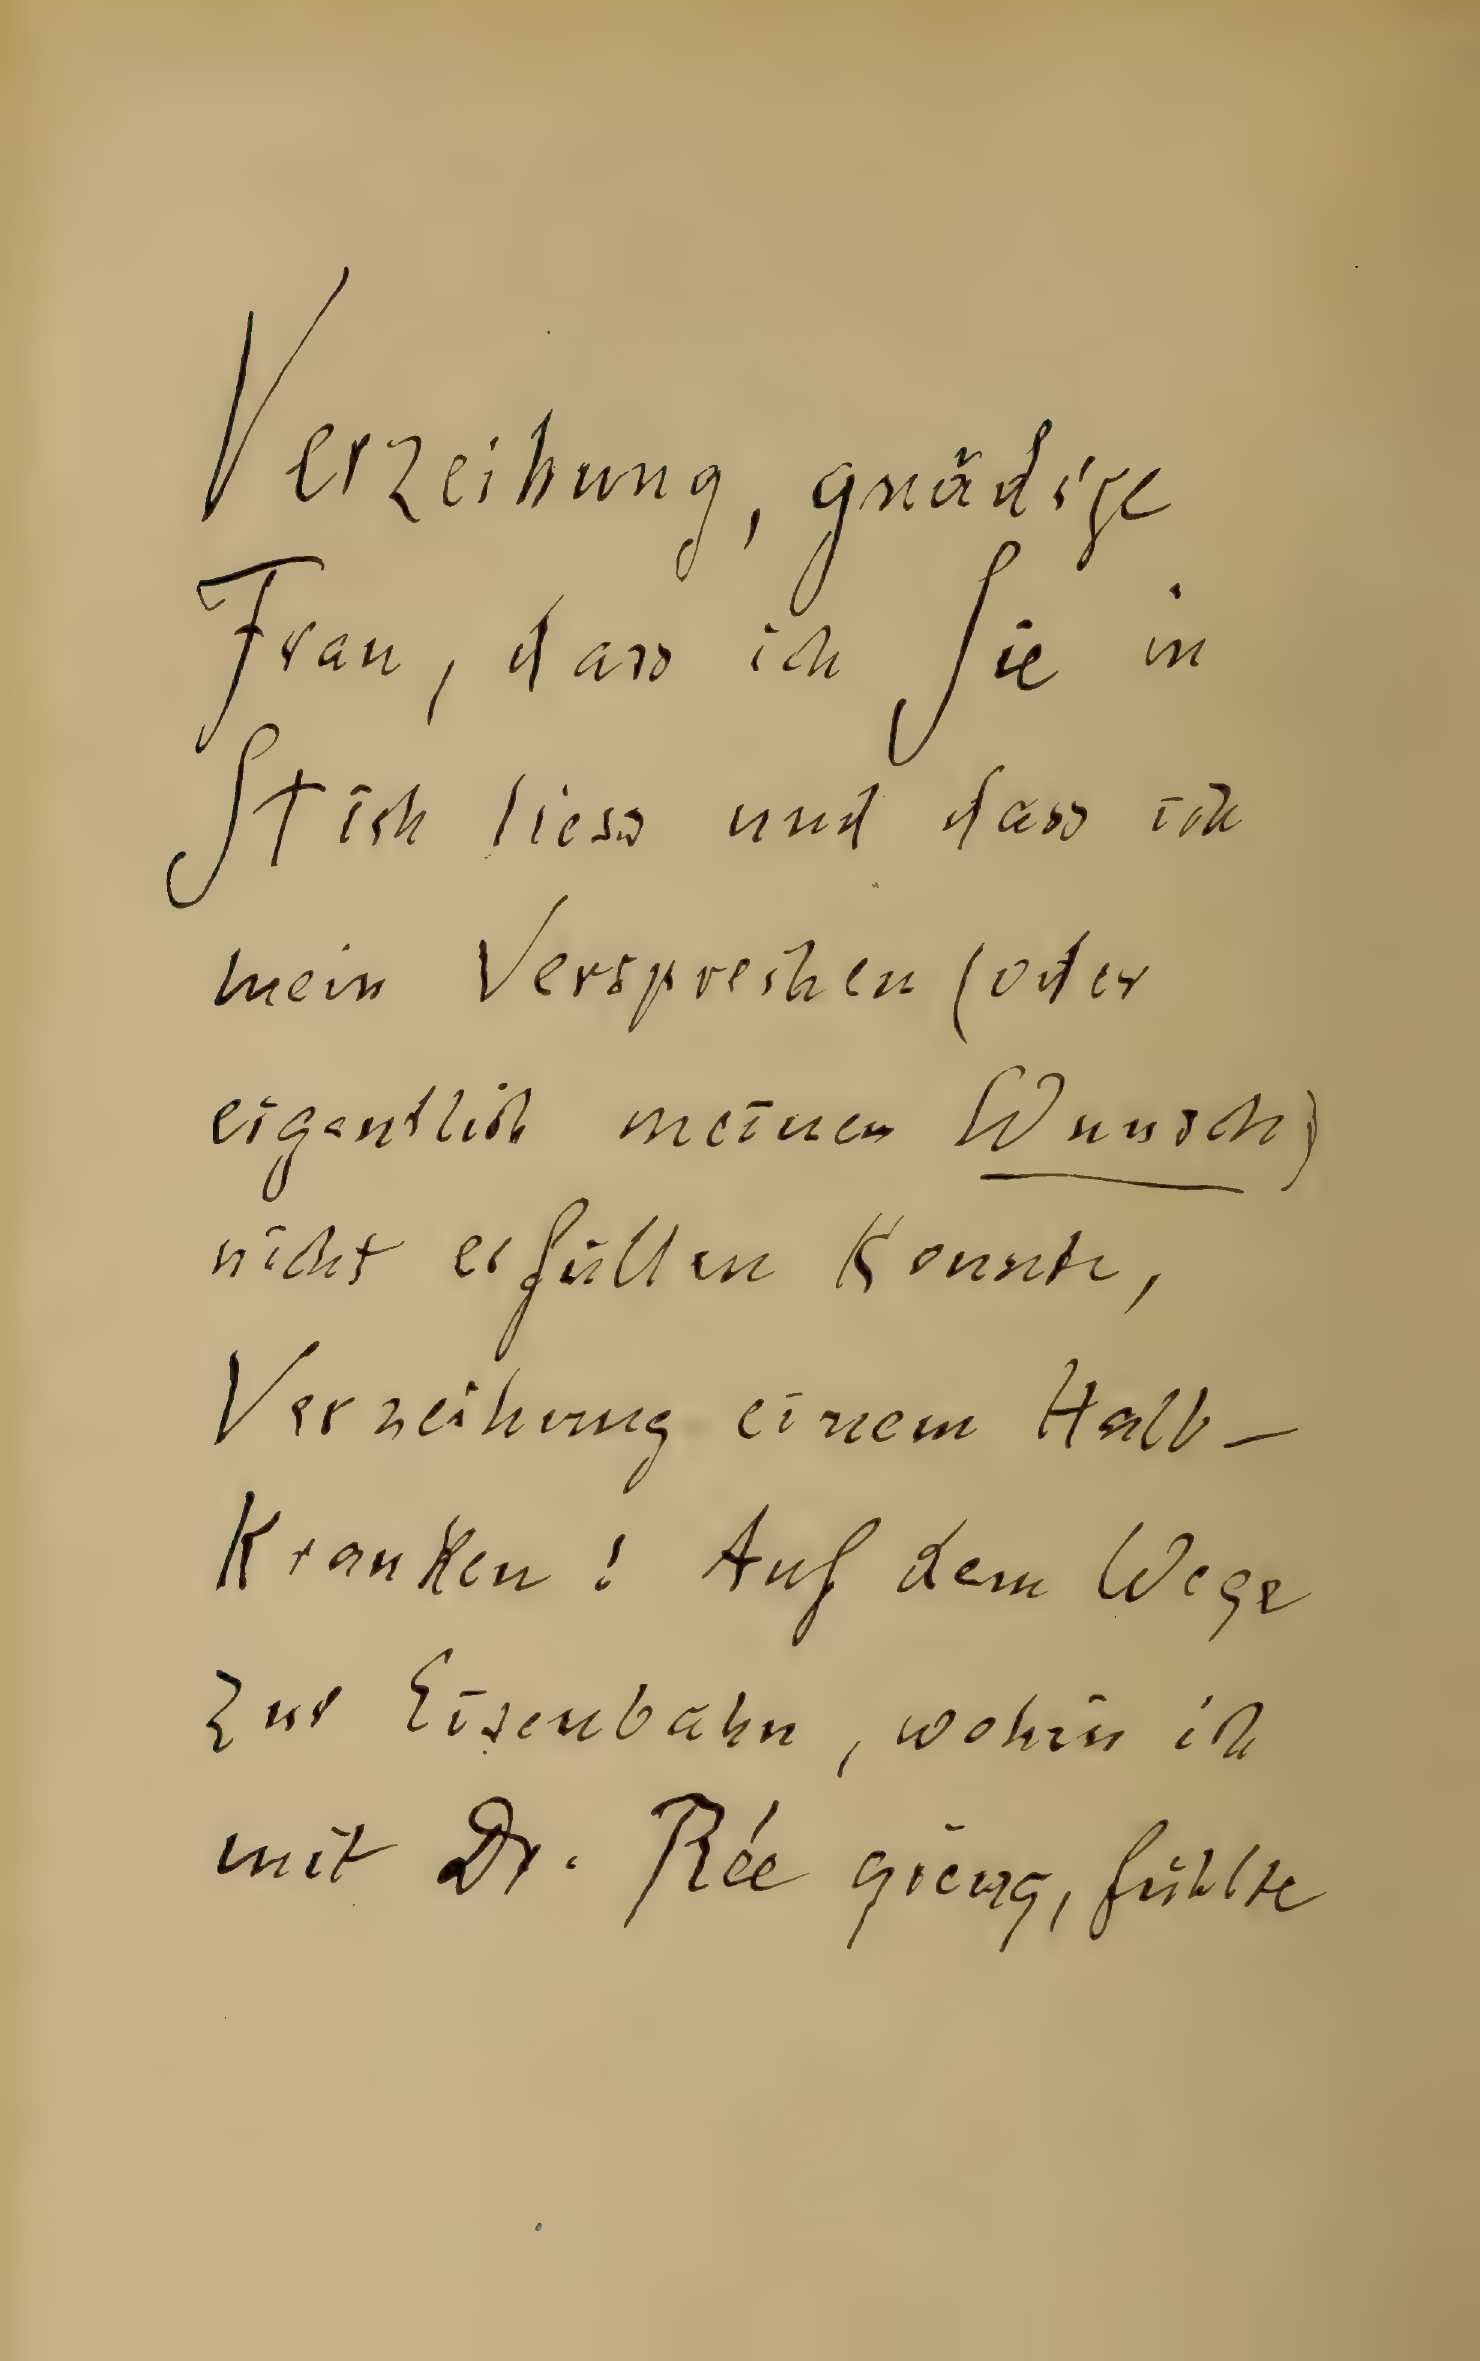 Verzeihung, gnädige
Frau, dass ich Sie in
Stich liess und dass ich
mein Versprechen (oder
eigentlich meinen Wunsch)
nicht erfüllen konnte,
Verzeihung einem Halb-
Kranken! Auf dem Wege
zur Eisenbahn, wohin ich
mit Dr. Rée gieng, fühlte